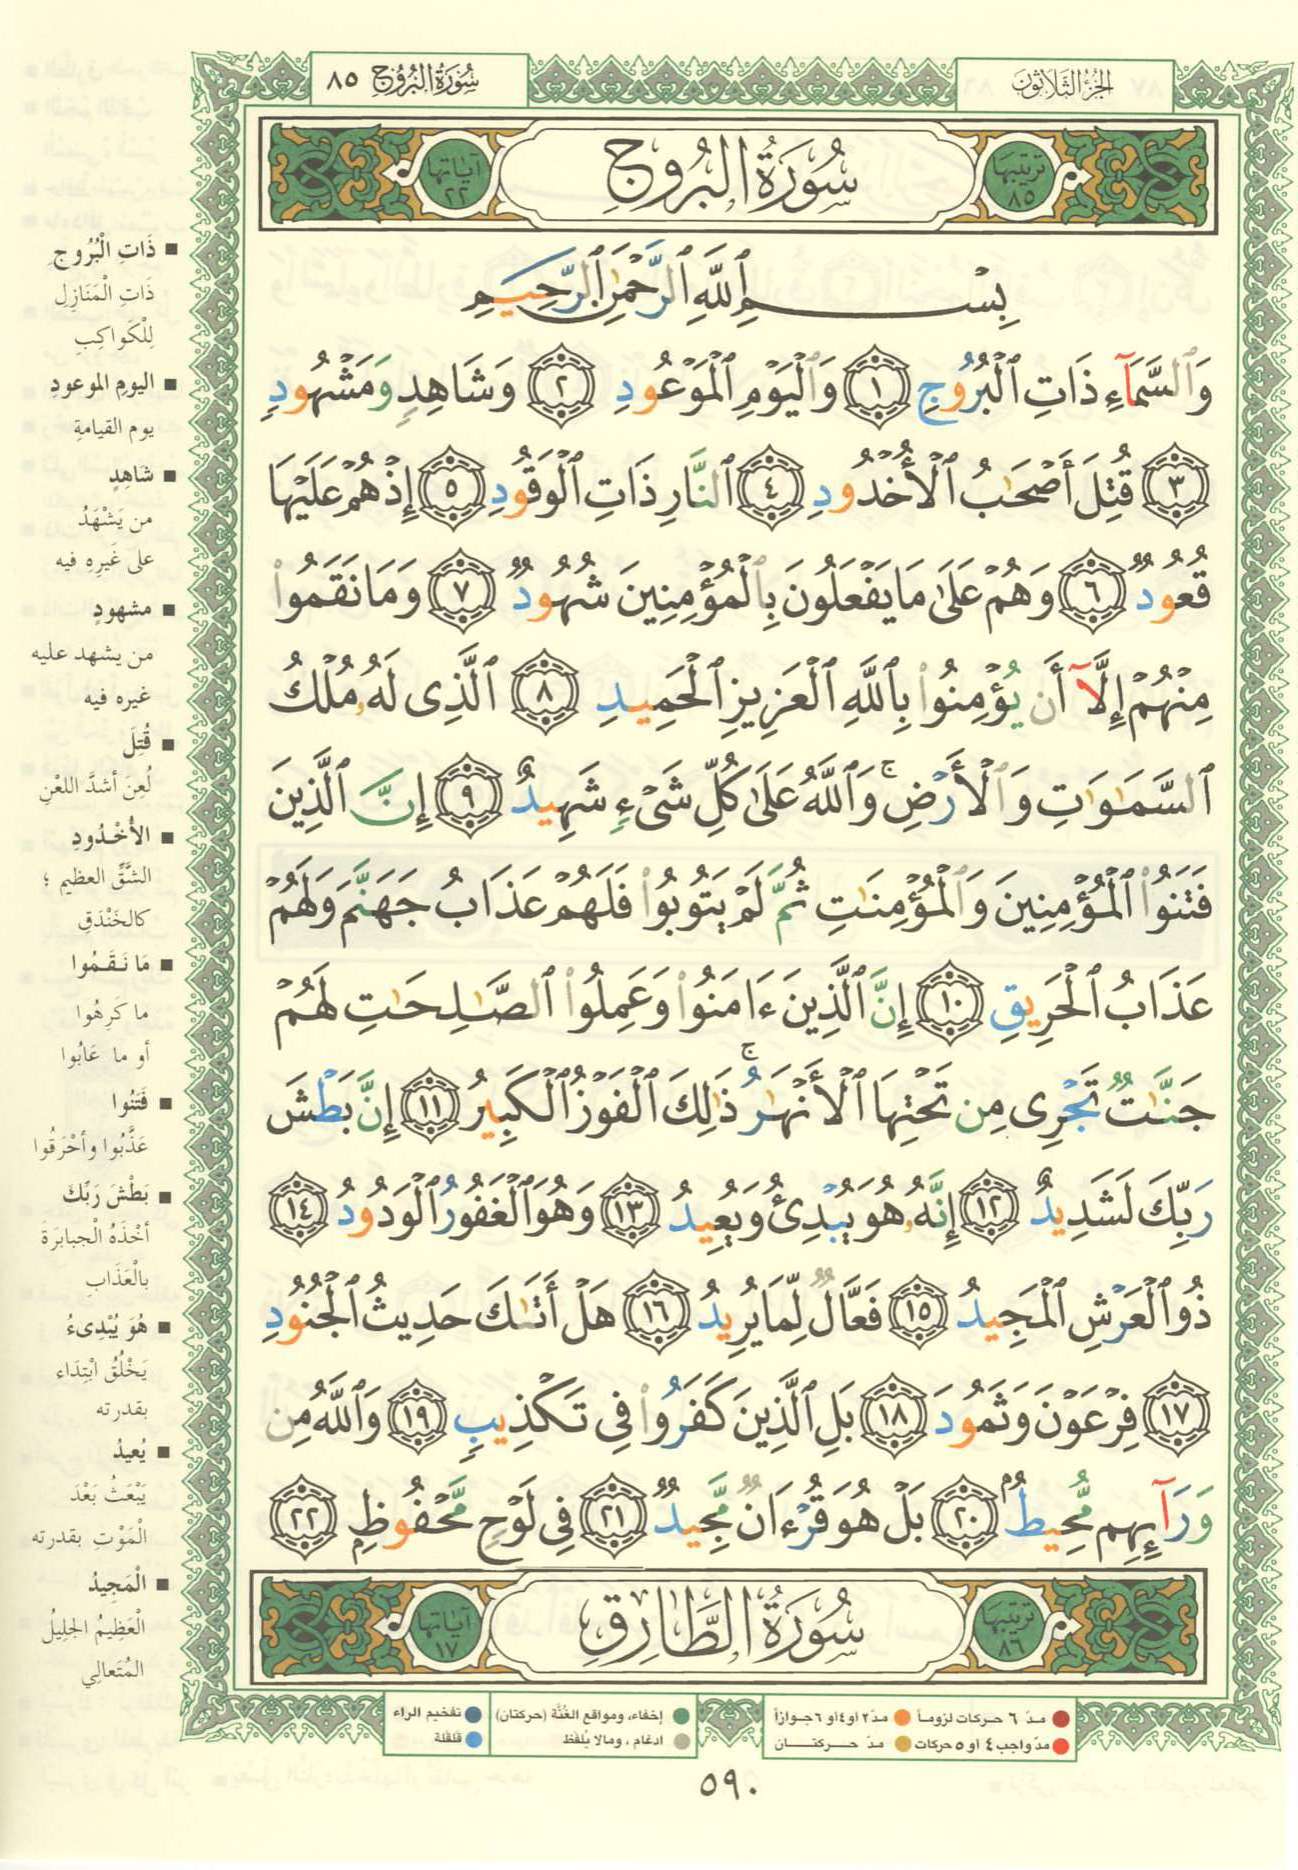 الجزء الثلاثون
سورة البروج ٨٥
ترتيبها ٨٥
سُورَةُ البُرُوجِ
آياتها ٢٢
بِسْمِ ٱللَّهِ ٱلرَّحْمَٰنِ ٱلرَّحِيمِ
وَٱلسَّمَآءِ ذَاتِ ٱلْبُرُوجِ ١ وَٱلْيَوْمِ ٱلْمَوْعُودِ ٢ وَشَاهِدٍ وَمَشْهُودٍ
٣ قُتِلَ أَصْحَٰبُ ٱلْأُخْدُودِ ٤ ٱلنَّارِ ذَاتِ ٱلْوَقُودِ ٥ إِذْ هُمْ عَلَيْهَا
قُعُودٌ ٦ وَهُمْ عَلَىٰ مَا يَفْعَلُونَ بِٱلْمُؤْمِنِينَ شُهُودٌ ٧ وَمَا نَقَمُوا۟
مِنْهُمْ إِلَّآ أَن يُؤْمِنُوا۟ بِٱللَّهِ ٱلْعَزِيزِ ٱلْحَمِيدِ ٨ ٱلَّذِى لَهُۥ مُلْكُ
ٱلسَّمَٰوَٰتِ وَٱلْأَرْضِ ۚ وَٱللَّهُ عَلَىٰ كُلِّ شَىْءٍ شَهِيدٌ ٩ إِنَّ ٱلَّذِينَ
فَتَنُوا۟ ٱلْمُؤْمِنِينَ وَٱلْمُؤْمِنَٰتِ ثُمَّ لَمْ يَتُوبُوا۟ فَلَهُمْ عَذَابُ جَهَنَّمَ وَلَهُمْ
عَذَابُ ٱلْحَرِيقِ ١٠ إِنَّ ٱلَّذِينَ ءَامَنُوا۟ وَعَمِلُوا۟ ٱلصَّٰلِحَٰتِ لَهُمْ
جَنَّٰتٌ تَجْرِى مِن تَحْتِهَا ٱلْأَنْهَٰرُ ۚ ذَٰلِكَ ٱلْفَوْزُ ٱلْكَبِيرُ ١١ إِنَّ بَطْشَ
رَبِّكَ لَشَدِيدٌ ١٢ إِنَّهُۥ هُوَ يُبْدِئُ وَيُعِيدُ ١٣ وَهُوَ ٱلْغَفُورُ ٱلْوَدُودُ ١٤
ذُو ٱلْعَرْشِ ٱلْمَجِيدُ ١٥ فَعَّالٌ لِّمَا يُرِيدُ ١٦ هَلْ أَتَىٰكَ حَدِيثُ ٱلْجُنُودِ
١٧ فِرْعَوْنَ وَثَمُودَ ١٨ بَلِ ٱلَّذِينَ كَفَرُوا۟ فِى تَكْذِيبٍ ١٩ وَٱللَّهُ مِن
وَرَآئِهِم مُّحِيطٌۢ ٢٠ بَلْ هُوَ قُرْءَانٌ مَّجِيدٌ ٢١ فِى لَوْحٍ مَّحْفُوظٍۭ ٢٢
ترتيبها ٨٦
سُورَةُ الطَّارِقِ
آياتها ١٧
■ ذَاتِ الْبُرُوجِ
ذَاتِ الْمَنَازِلِ
لِلْكَواكِبِ
■ اليومِ الموعودِ
يوم القيامةِ
■ شَاهِدٍ
من يَشْهَدُ
على غَيرِهِ فيه
■ مشهودٍ
من يشهد عليه
غيره فيه
■ قُتِلَ
لُعِنَ أشدَّ اللعْنِ
■ الأُخْدُودِ
الشَّقِّ العظيم ؛
كالخَنْدَقِ
■ مَا نَقَمُوا
ما كَرِهُوا
أو ما عَابُوا
■ فَتَنُوا
عَذَّبُوا وأحْرَقُوا
■ بَطْشَ رَبِّكَ
أخْذَهُ الْجبابرَةَ
بالْعَذَابِ
■ هُوَ يُبْدِىءُ
يَخْلُقُ ابْتِدَاء
بقدرته
■ يُعيدُ
يَبْعَثُ بَعْدَ
الْمَوْتِ بقدرته
■ الْمَجِيدُ
الْعَظِيمُ الجلِيلُ
المُتَعالِي
مدّ ٦ حركات لزوماً مدّ ٢ او ٤ او ٦ جوازاً
مدّ واجب ٤ او ٥ حركات مدّ حركتان
إخفاء، ومواقع الغُنَّة (حركتان)
ادغام ، ومالا يُلفَظ
تفخيم الراء
قلقلة
٥٩٠